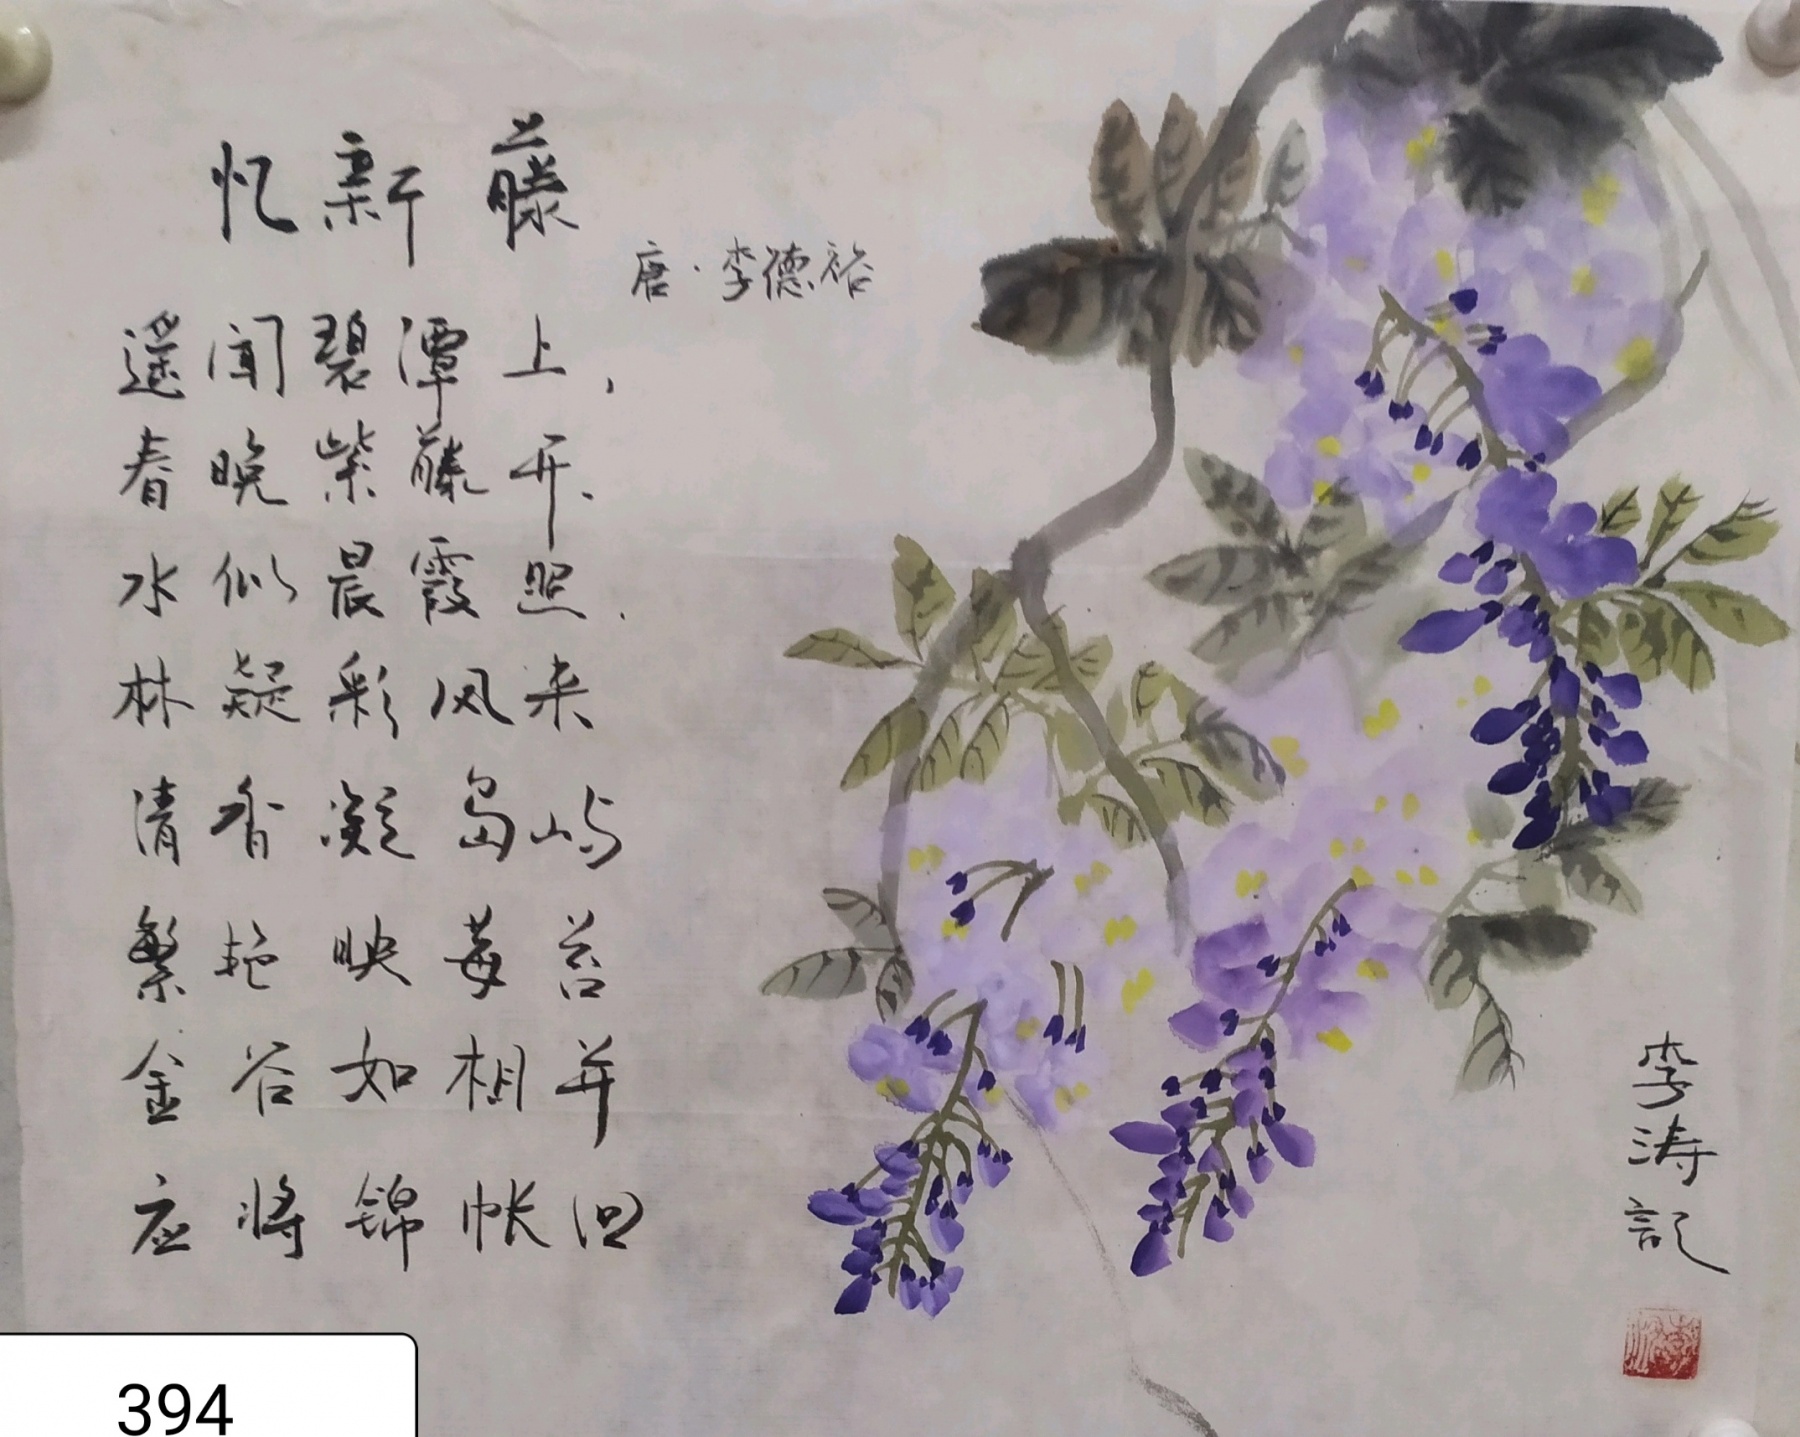 忆新藤
唐·李德裕
遥闻碧潭上，
春晚紫藤开、
水似晨霞照．
林疑彩凤来
清香凝岛屿
繁艳映莓苔
金谷如相并
应将锦帐回
李涛记
394